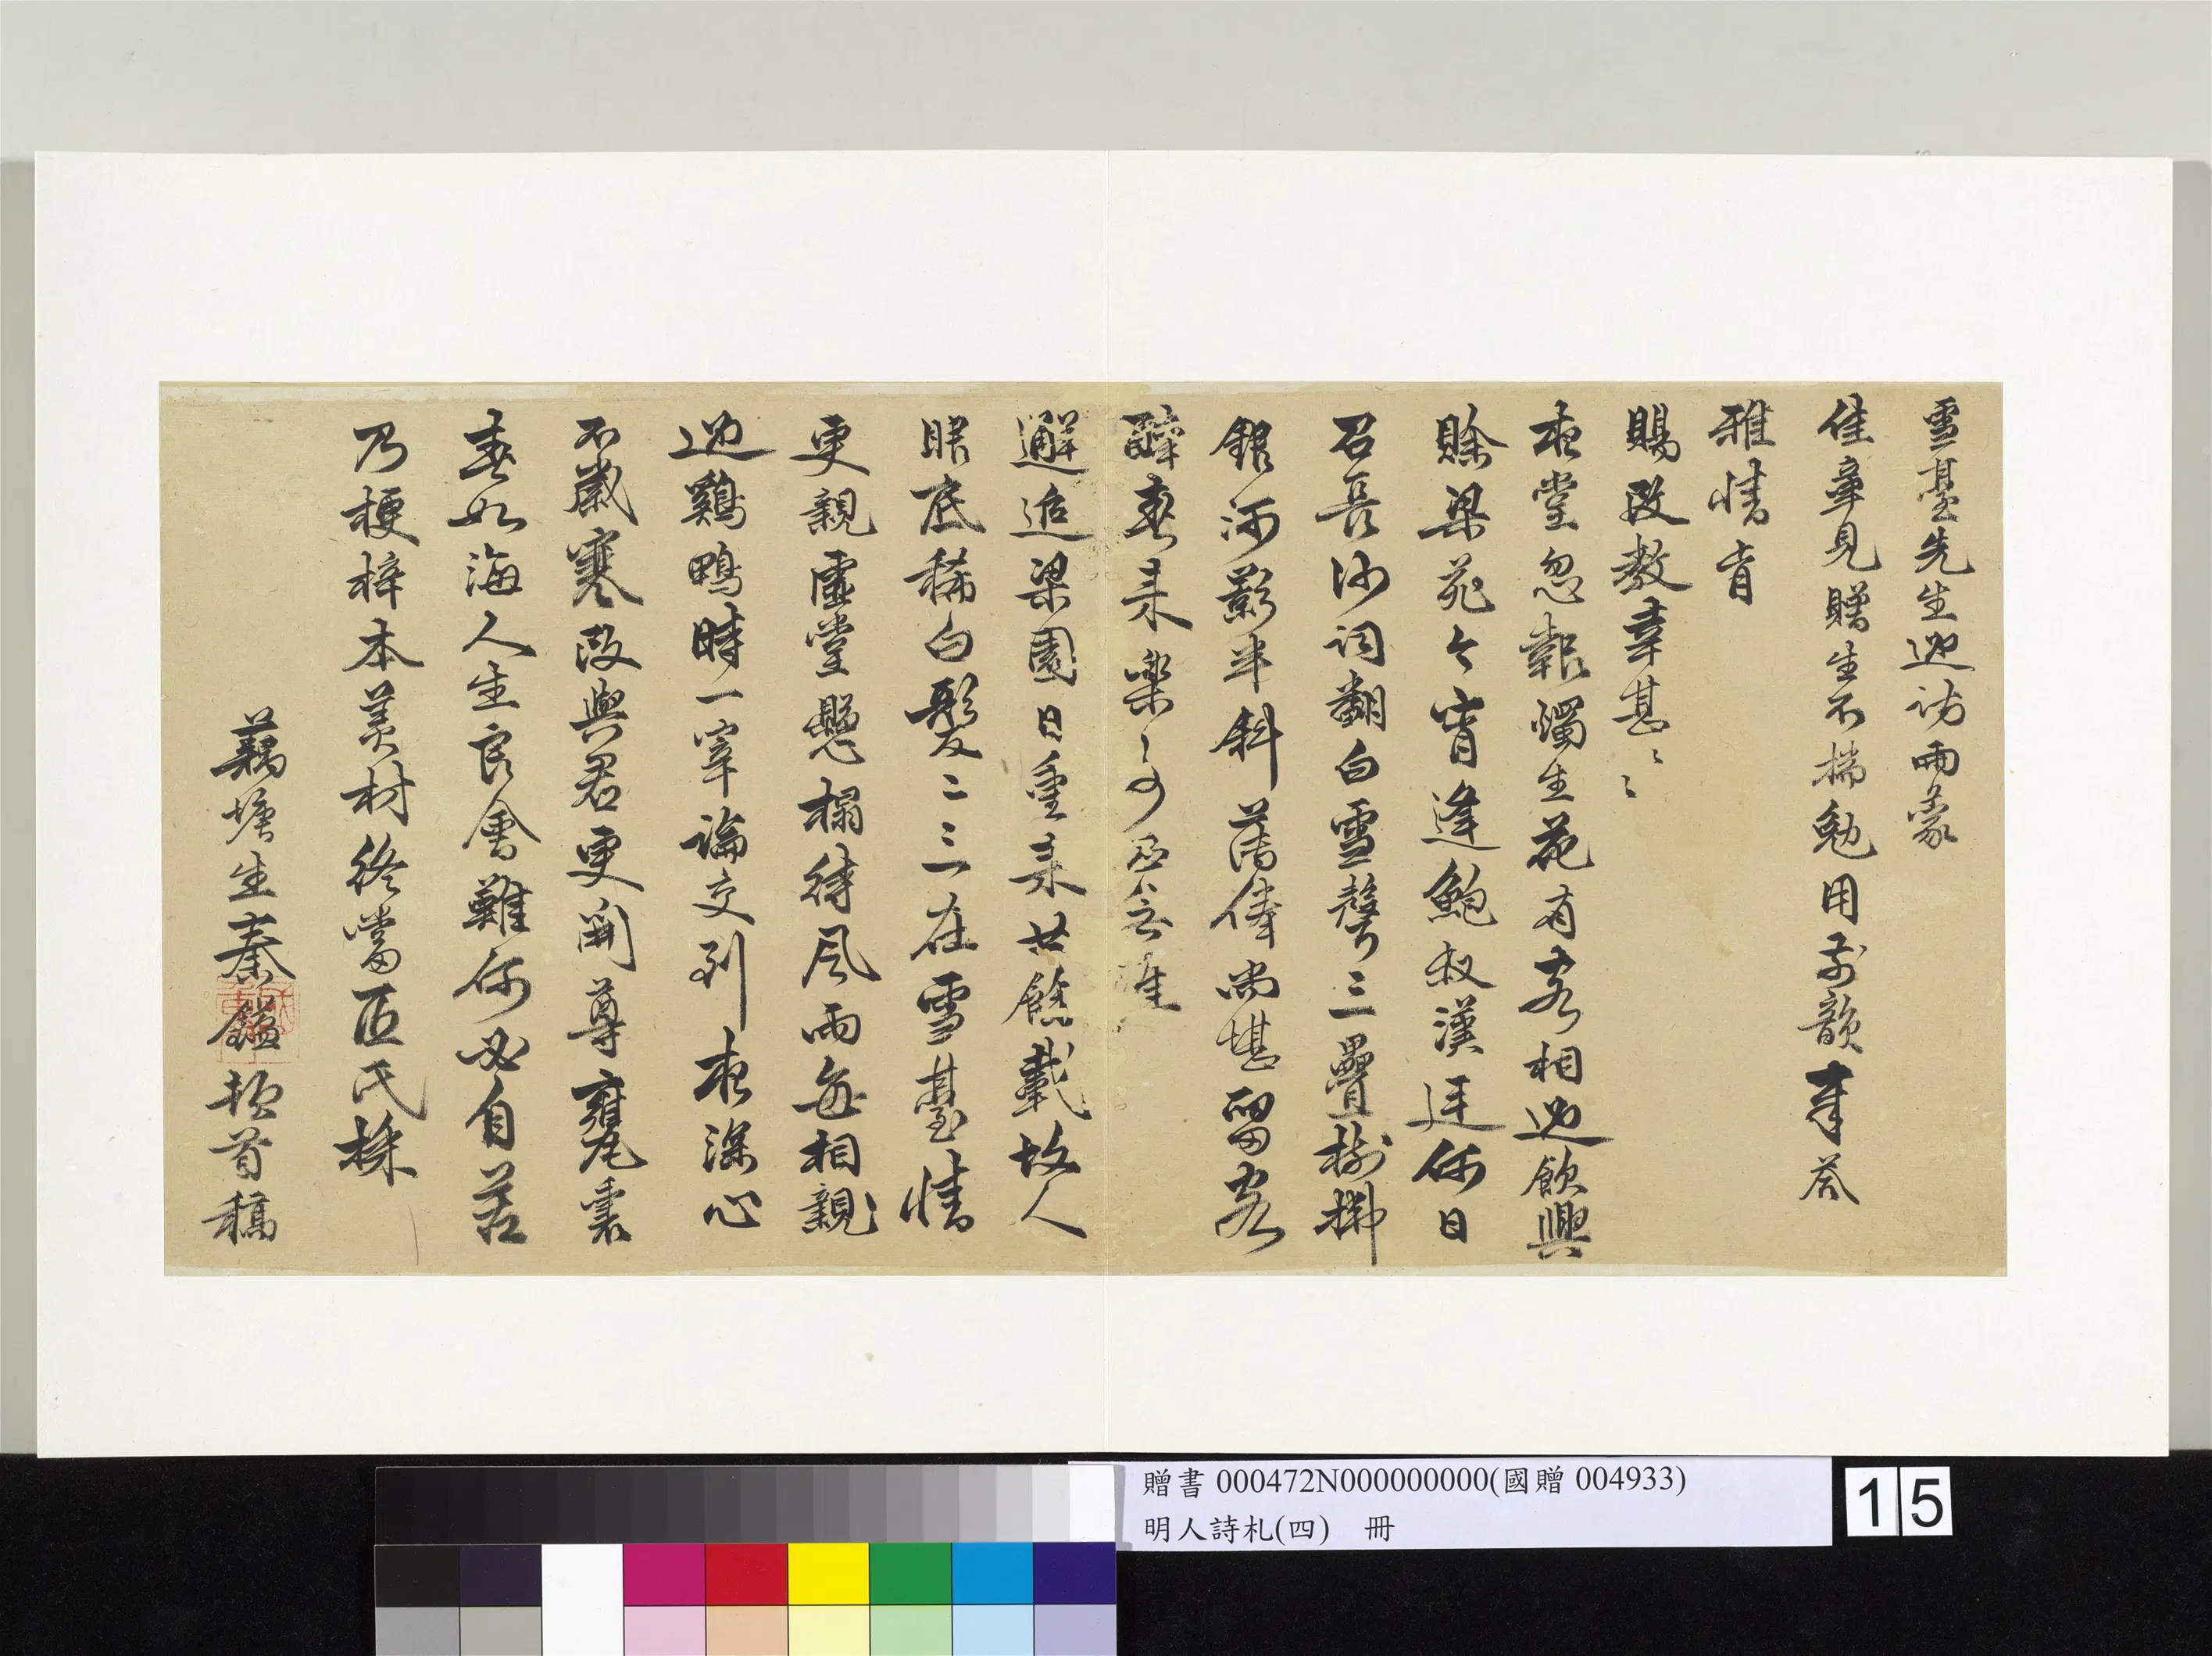 雪臺先生過訪兩蒙
佳章見贈生不揣勉用前韻奉荅
雅情肯
賜改教幸甚〻〻
夜堂忽報燭生花有客相過飲興
賒梁苑今宵逢鮑叔漢廷何日
召長沙詞翻白雪聲三疊樹拂
銀河影半斜薄俸尚堪留客
醉春來樂
邂逅梁園日重來廿餘載故人
眼底稀白髮二三在雪臺情
更親虛堂懸榻待風雨每相親
過雞鴨時一宰論交到夜深心
不歲寒改與君更開尊甕裏
春如海人生良會難何必自苦
乃梗梓本美材終當匠氏採
藕塘生秦鎰頓首稿
贈書 000472N000000000(國贈 004933)
明人詩札(四) 冊
15